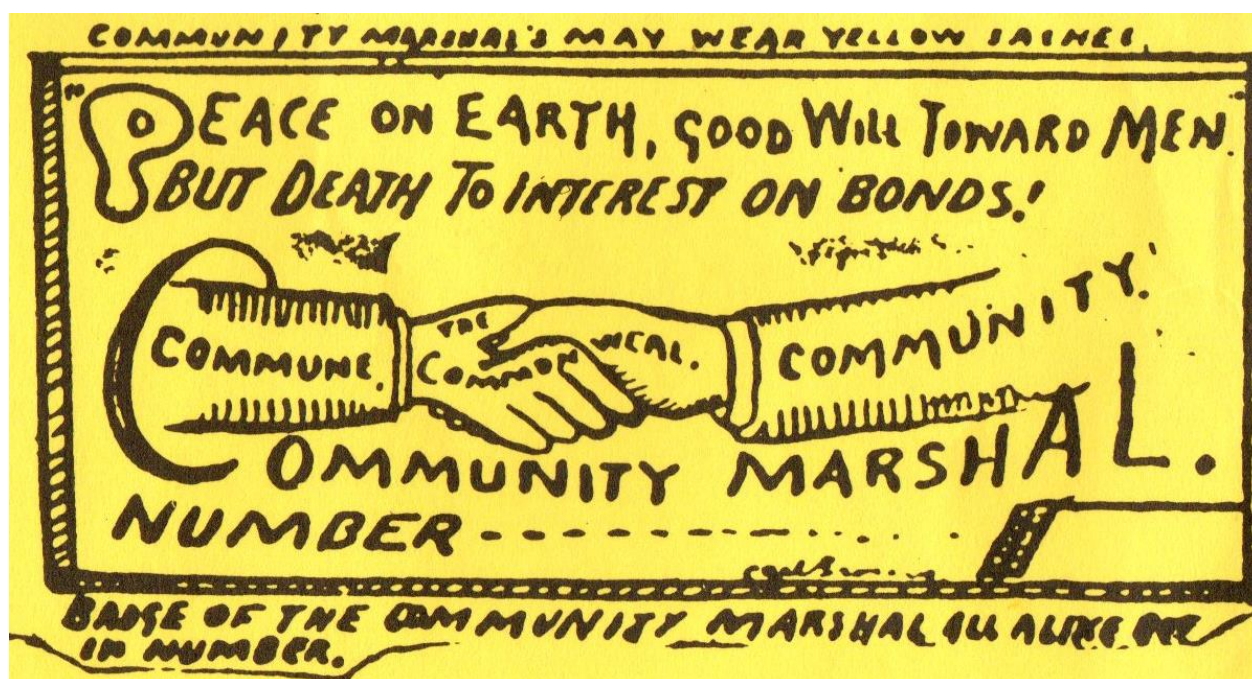 COMMUNITY MARSHAL'S MAY WEAR YELLOW SASHES.
"PEACE ON EARTH, GOOD WILL TOWARD MEN.
BUT DEATH TO INTEREST ON BONDS!
COMMUNE.
THE
COMMON WEAL.
COMMUNITY.
COMMUNITY MARSHAL.
NUMBER
BADGE OF THE COMMUNITY MARSHAL ALL ALIKE
IN NUMBER.